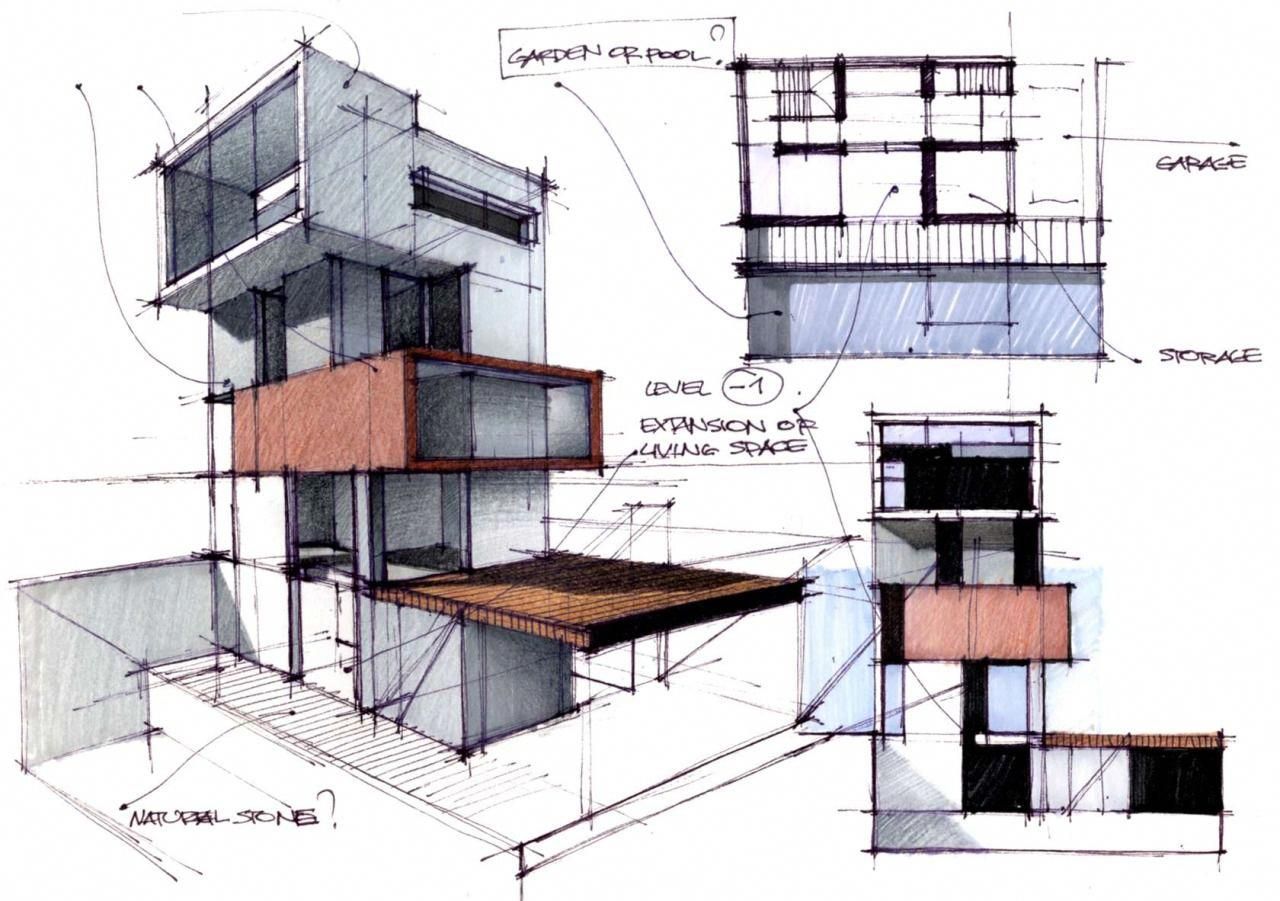 GARDEN OR POOL?
GARAGE
STORAGE
LEVEL -1
EXPANSION OF
LIVING SPACE
NATURAL STONE?